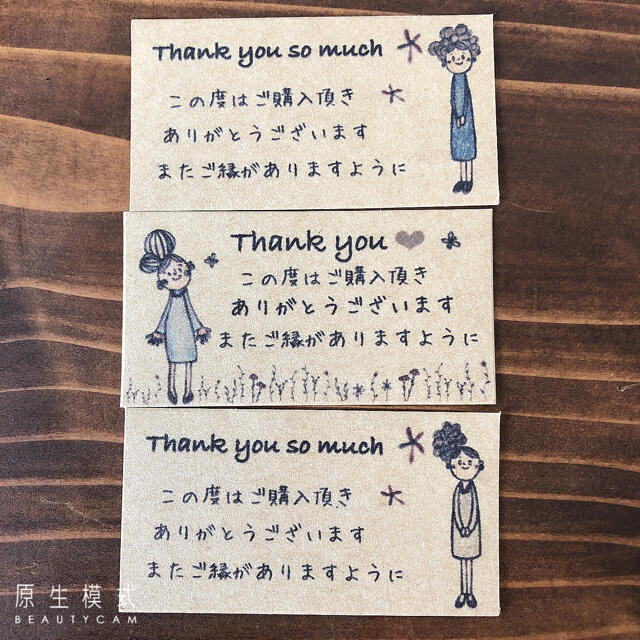 Thank you so much
この度はご購入頂き
ありがとうございます
またご縁がありますように
Thank you
この度はご購入頂き
ありがとうございます
またご縁がありますように
Thank you so much
この度はご購入頂き
ありがとうございます
またご縁がありますように
原生模式
BEAUTYCAM